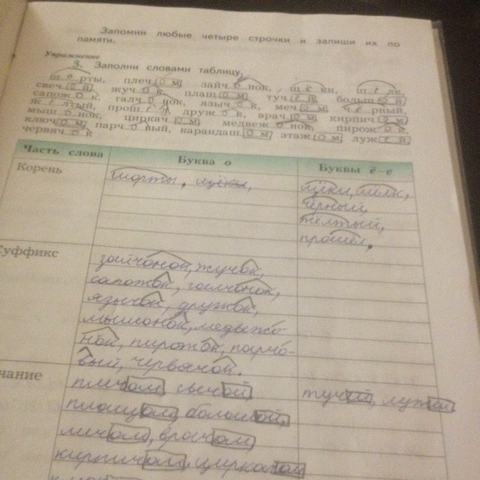 Запомни любые четыре строчки и запиши их по
памяти.
Упражнение
3. Заполни словами таблицу.
шорты, плечом, зайчонок, щёки, шёлк,
свечой, жучок, плащом, тучей, большой,
сапожок, галчонок, язычок, мечом, чёрный,
жёлтый, прошёл, дружок, врачом, кирпичом,
мышонок, циркачом, медвежонок, пирожок,
ключом, парчовый, карандашом, этажом, лужей,
червячок
Часть слова Буква о Буквы ё–е
Корень шорты, щёки, шёлк,
чёрный,
жёлтый,
прошёл.
Суффикс зайчонок, жучок,
сапожок, галчонок,
язычок, дружок,
мышонок, медвежо-
нок, пирожок, парчо-
вый, червячок.
чание плечом, свечой тучей, лужей
плащом, большой,
мечом, врачом
кирпичом, циркачом